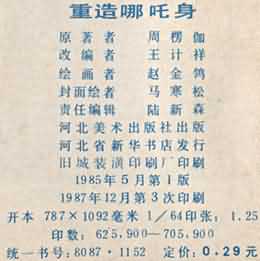 重造哪吒身
原著者 周楞伽
改编者 王计祥
绘画者 赵金鸽
封面绘者 马寒松
责任编辑 陆新森
河北美术出版社出版
河北省新华书店发行
旧城装潢印刷厂印刷
1985年5月第1版
1987年12月第3次印刷
开本 787×1092毫米 1/64印张：1.25
印数：625,900—705,900
统一书号：8087·1152 定价：0.29元